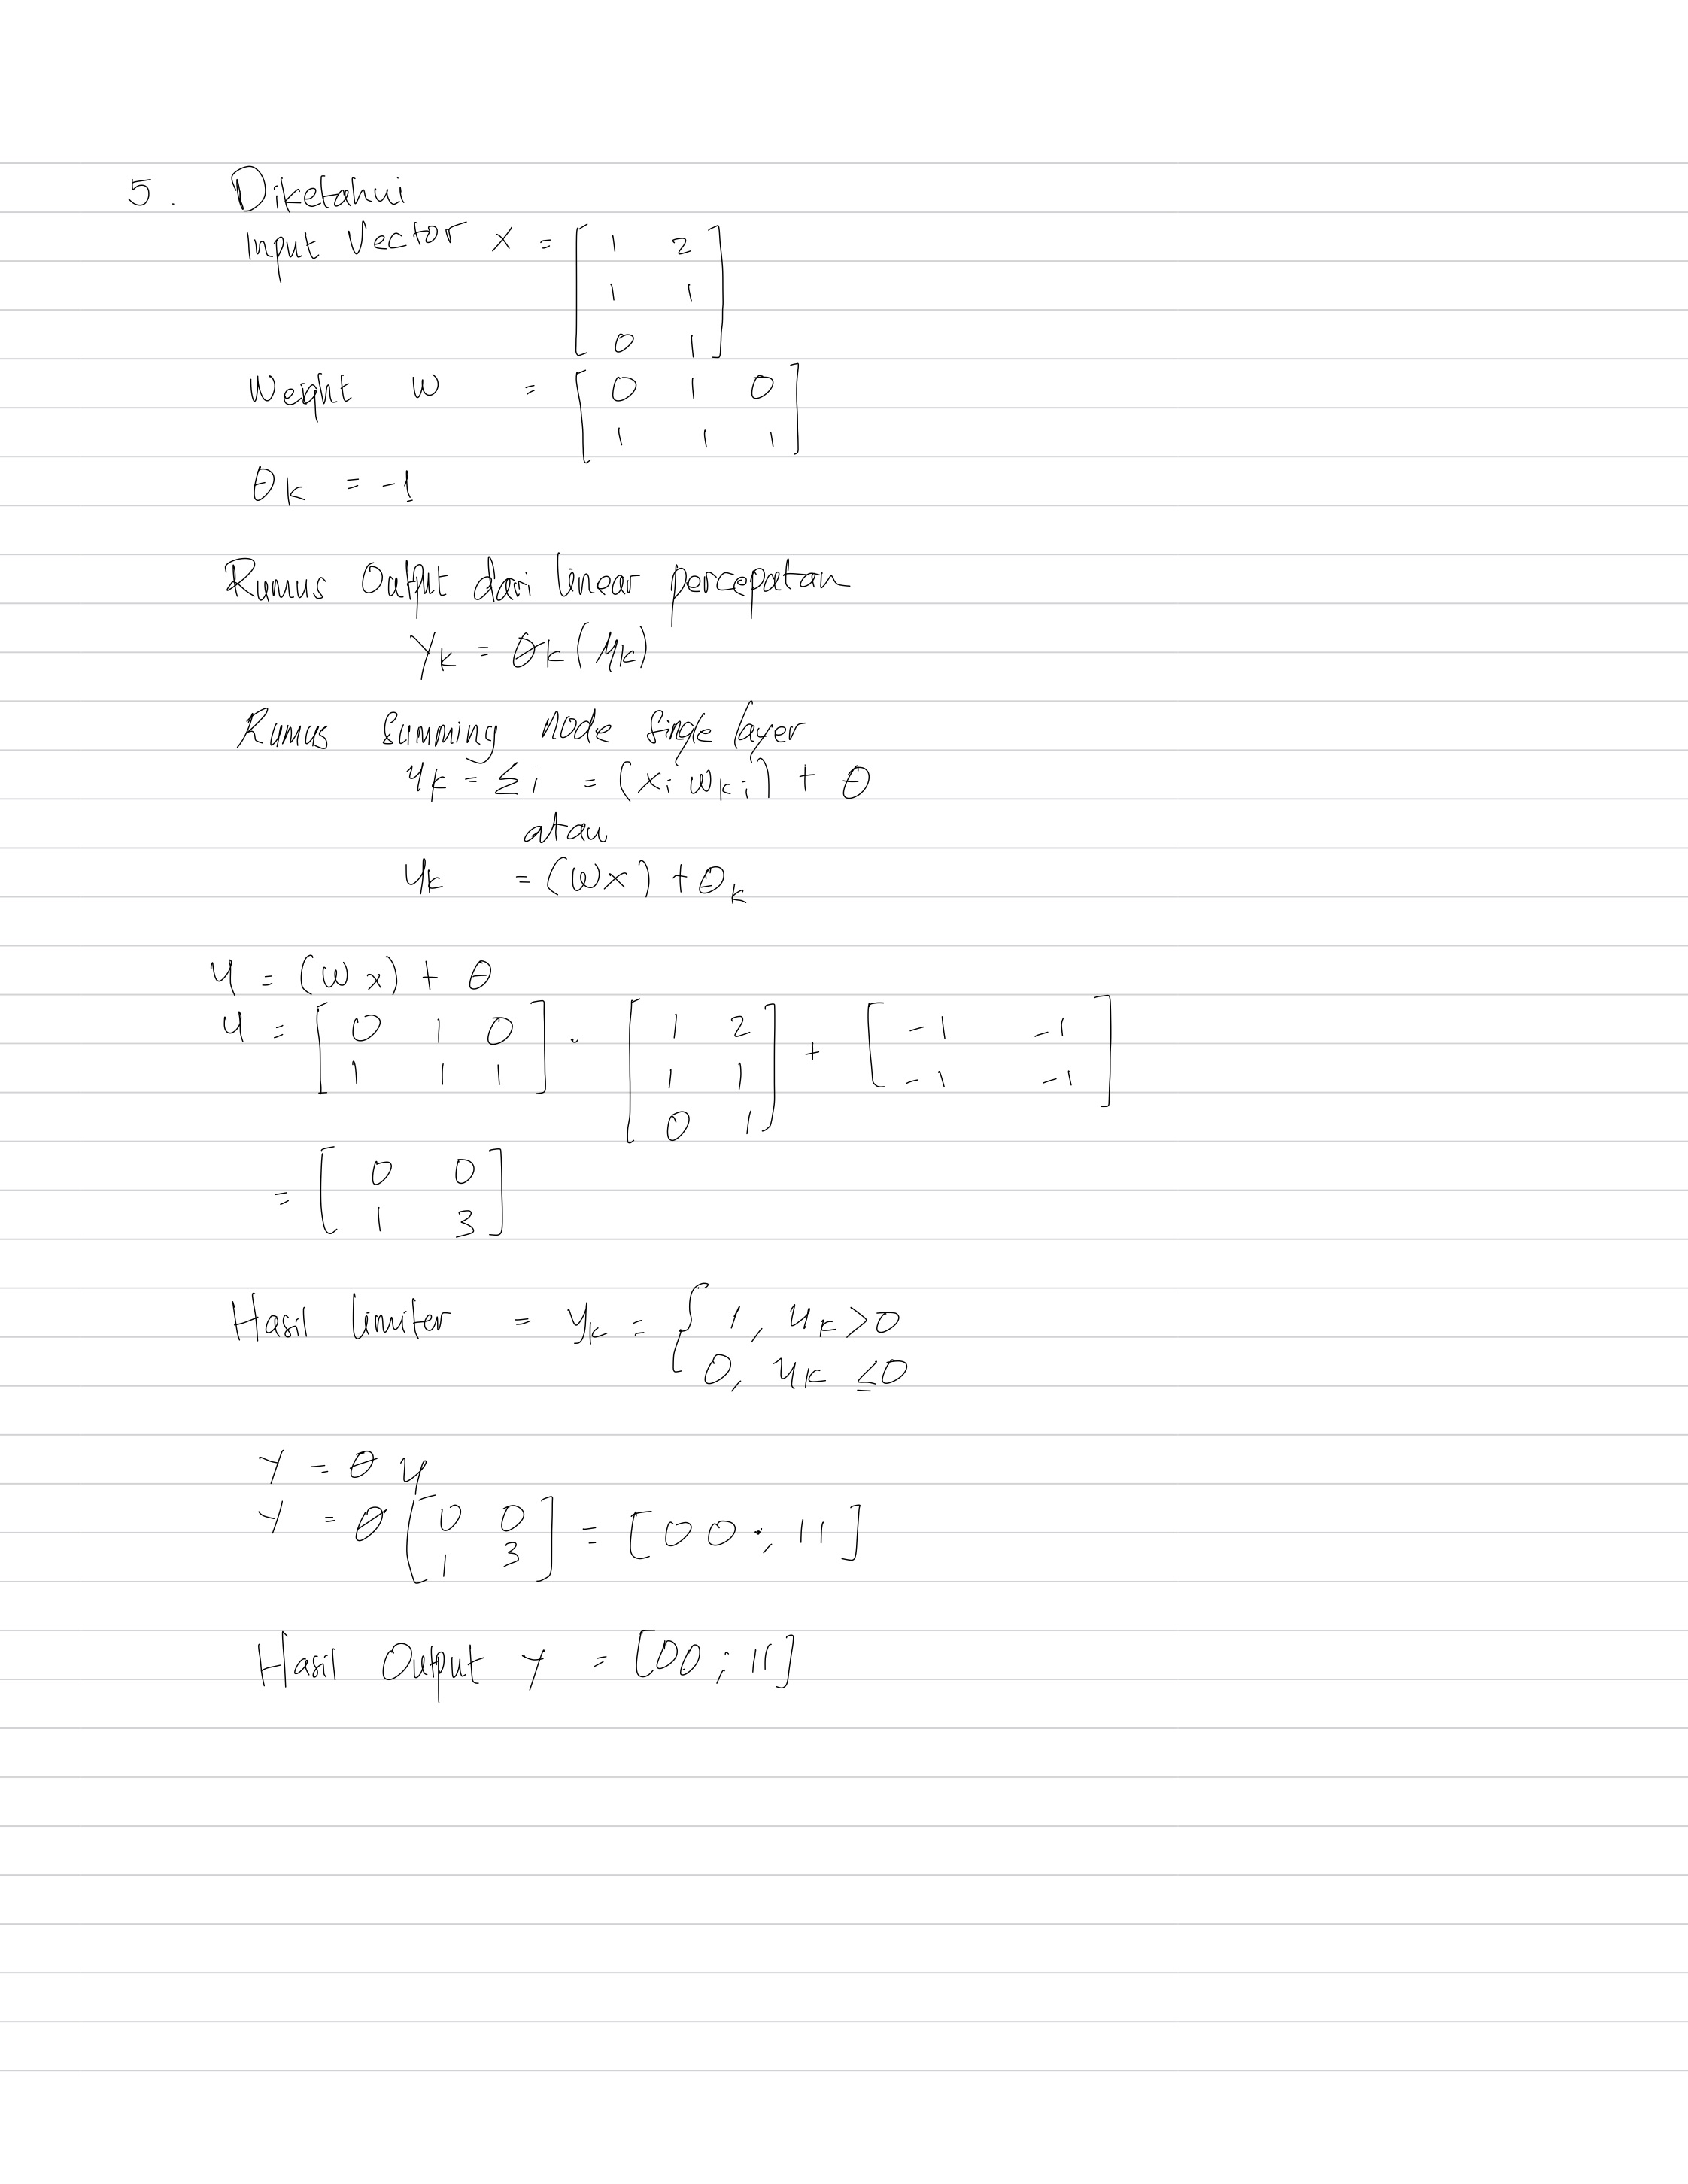 5. Diketahui
Input Vector x = [ 1 2
1 1
0 1 ]
Weight w = [ 0 1 0
1 1 1 ]
θk = -1
Rumus Output dari linear percepatan
Yk = θk (μk)
Rumus Summing node single layer
uk = Σi = (xi wki) + θ
atau
uk = (wx) + θk
u = (w x) + θ
u = [ 0 1 0 ; 1 1 1 ] . [ 1 2 ; 1 1 ; 0 1 ] + [ -1 -1 ; -1 -1 ]
= [ 0 0
1 3 ]
Hasil limiter = yk = { 1, uk > 0
0, uk ≤ 0
Y = θ u
Y = θ [ 0 0 ; 1 3 ] = [ 0 0 ; 1 1 ]
Hasil Output y = [ 0 0 ; 1 1 ]